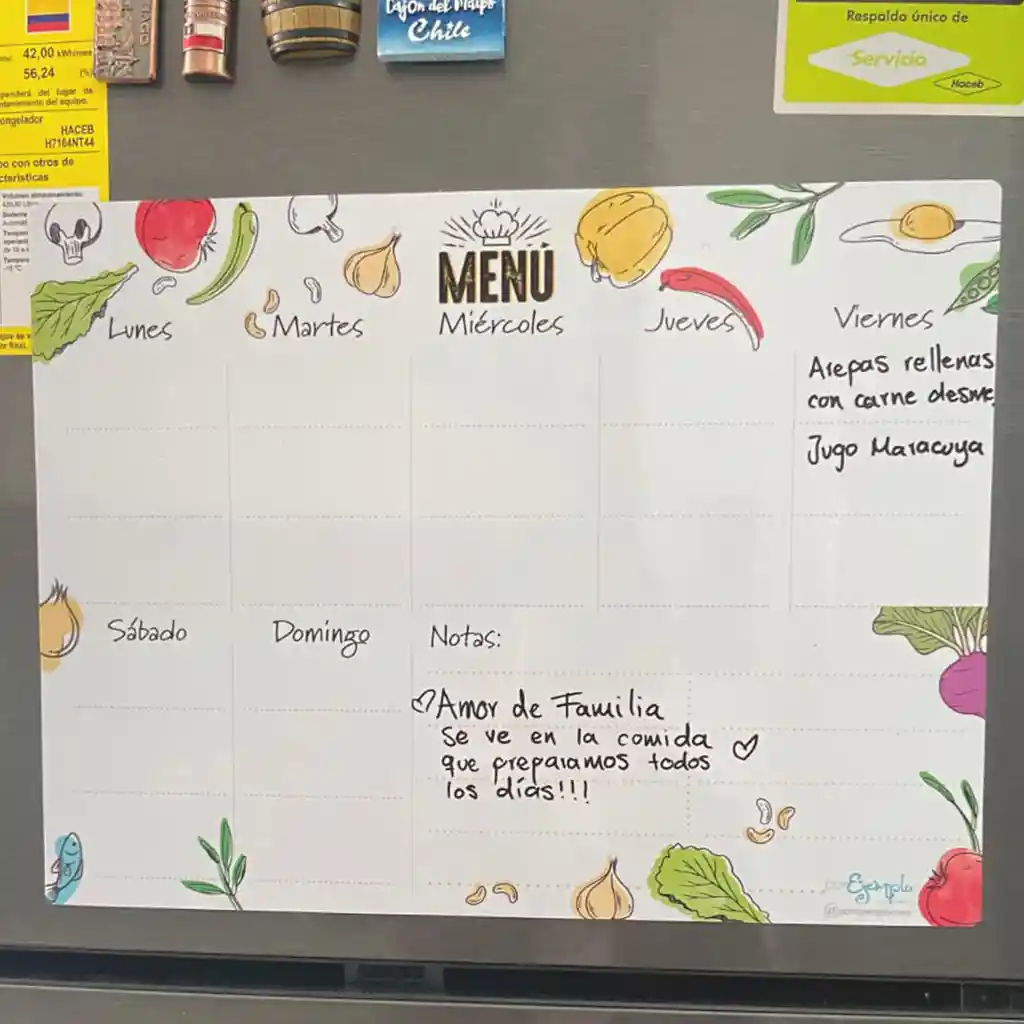 Cajon del Maipo
Chile
Respaldo único de
Servicio
Haceb
42,00 kWh/mes
56,24 (%)
del lugar de
del equipo.
HACEB
H7164NT44
con otros de
MENÚ
Lunes
Martes
Miércoles
Jueves
Viernes
Arepas rellenas
con carne desme
Jugo Maracuya
Sábado
Domingo
Notas:
Amor de Familia
Se ve en la comida
que preparamos todos
los días!!!
Ejemplo